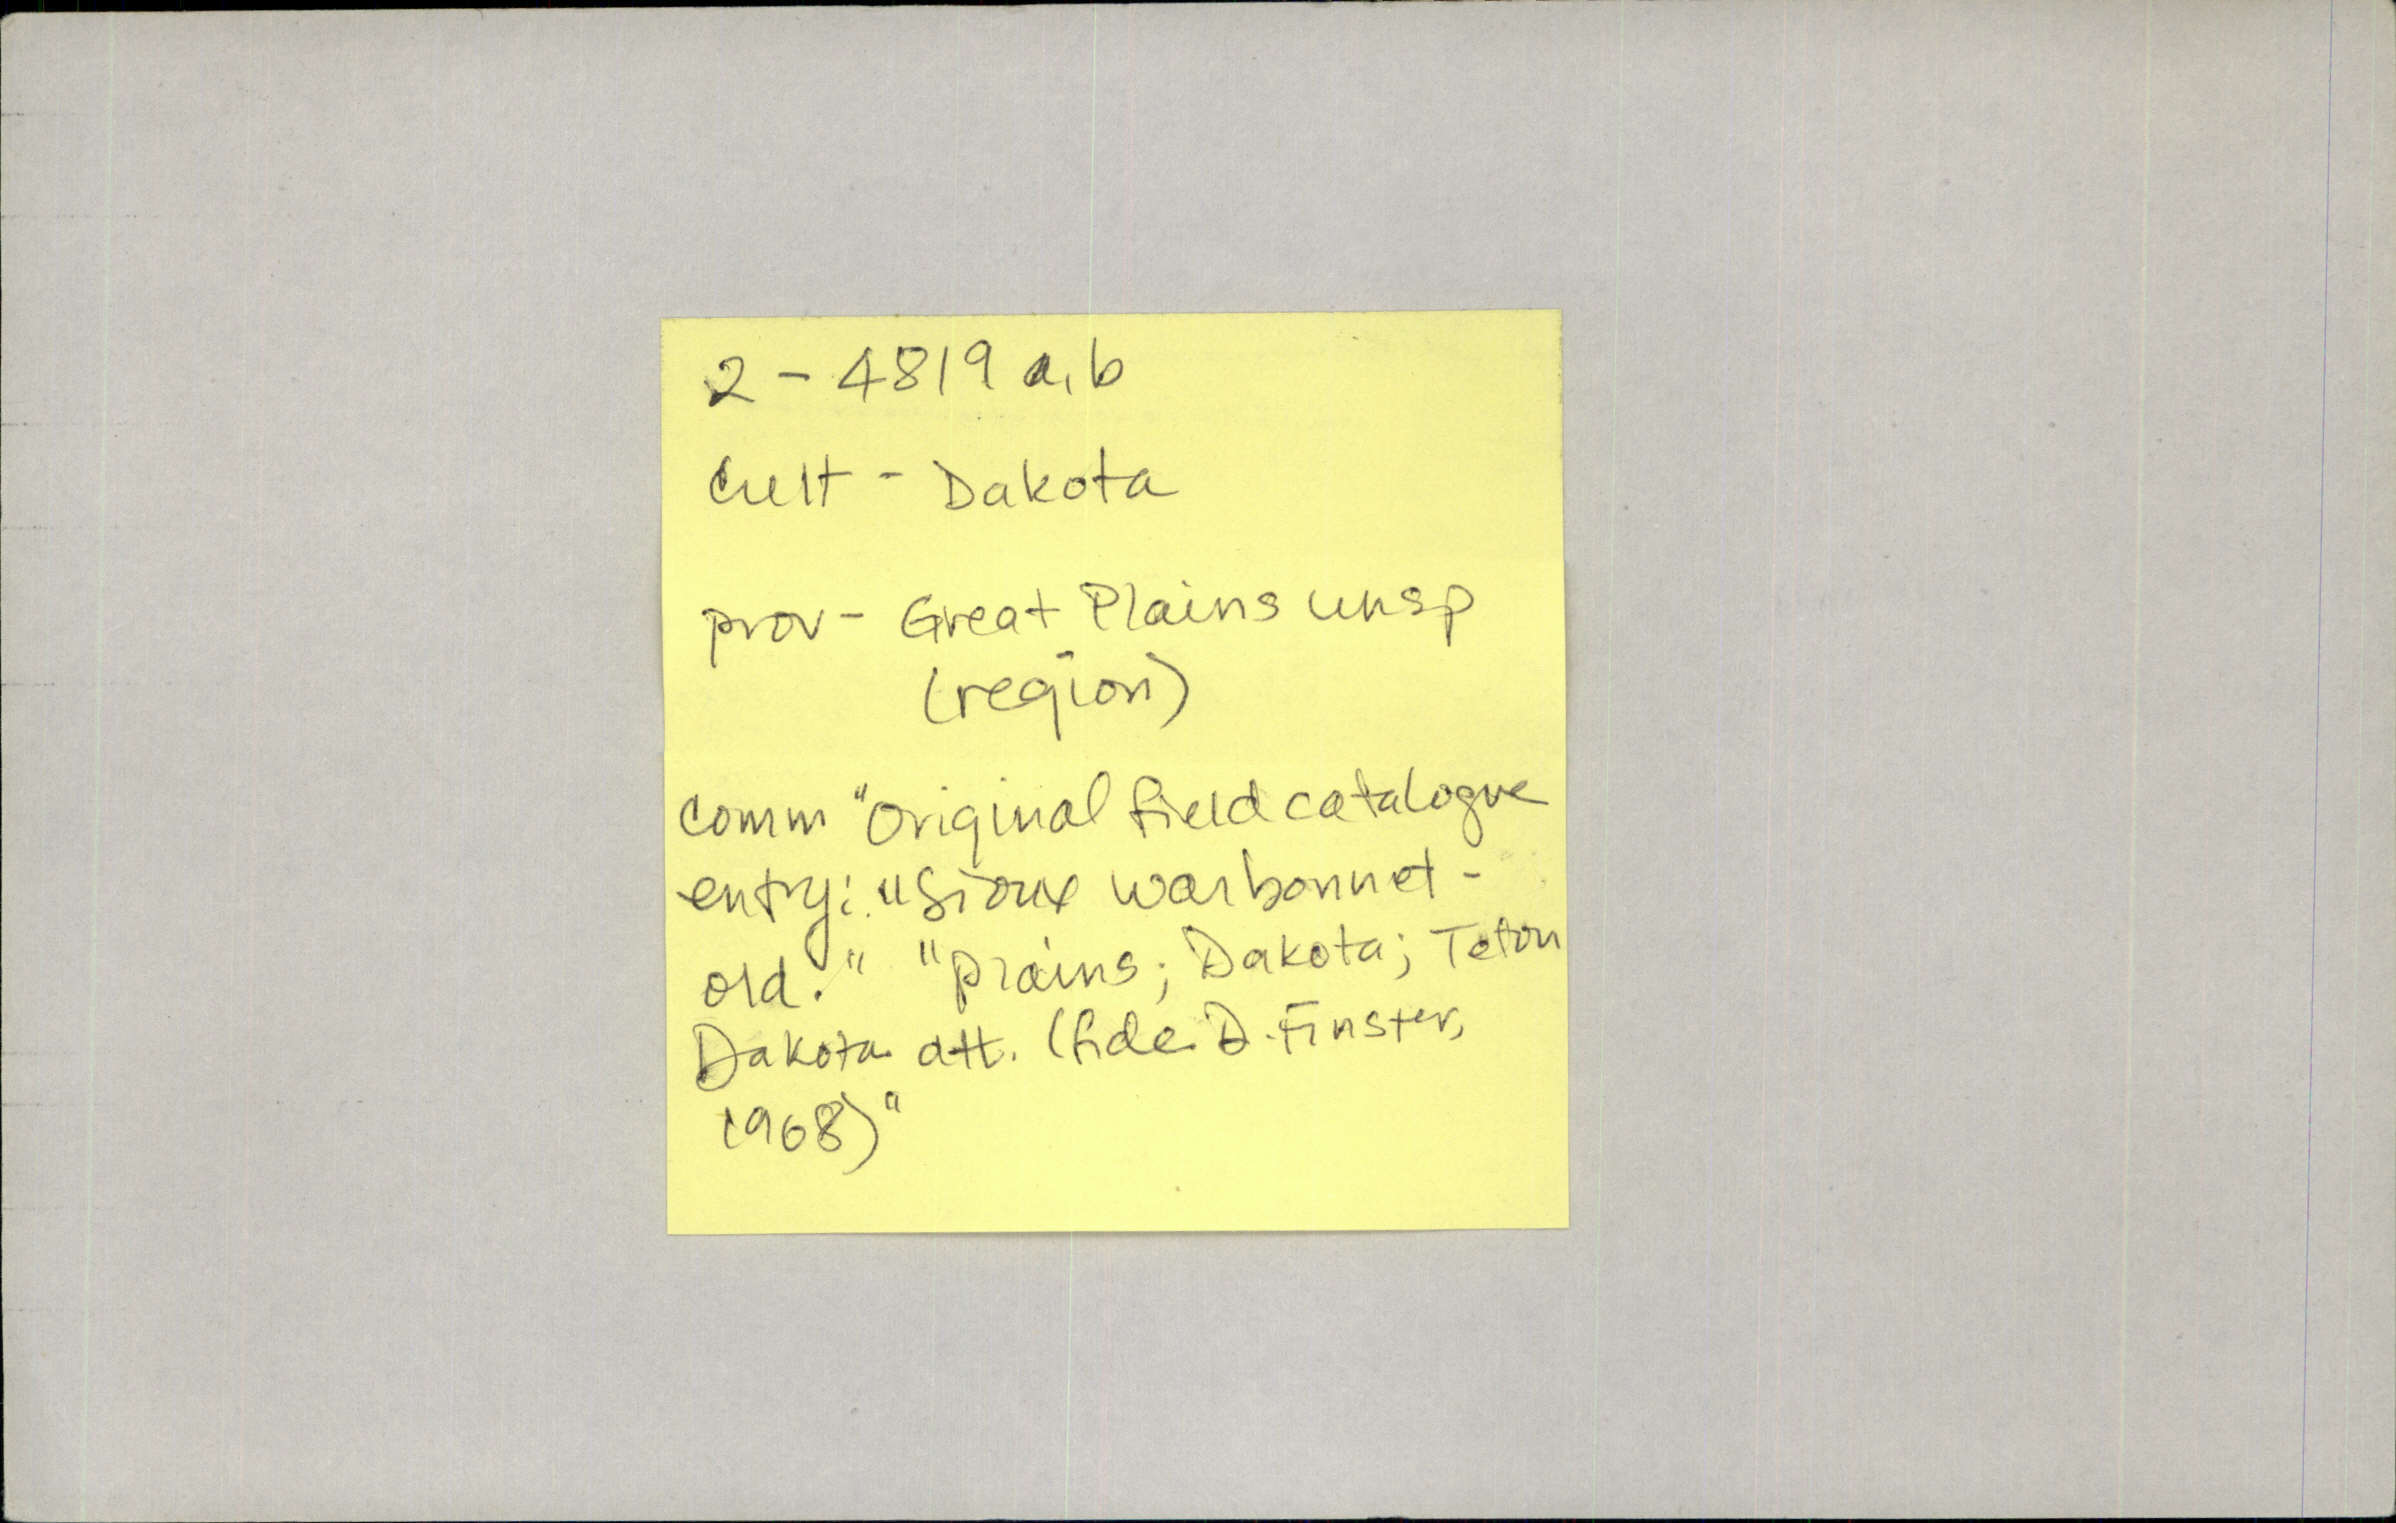 2 - 4819 a, b
Cult - Dakota
prov - Great Plains unsp
(region)
comm "Original field catalogue
entry: "Sioux warbonnet -
old." "Plains; Dakota; Teton
Dakota att. (fide D. Finster,
1968)"